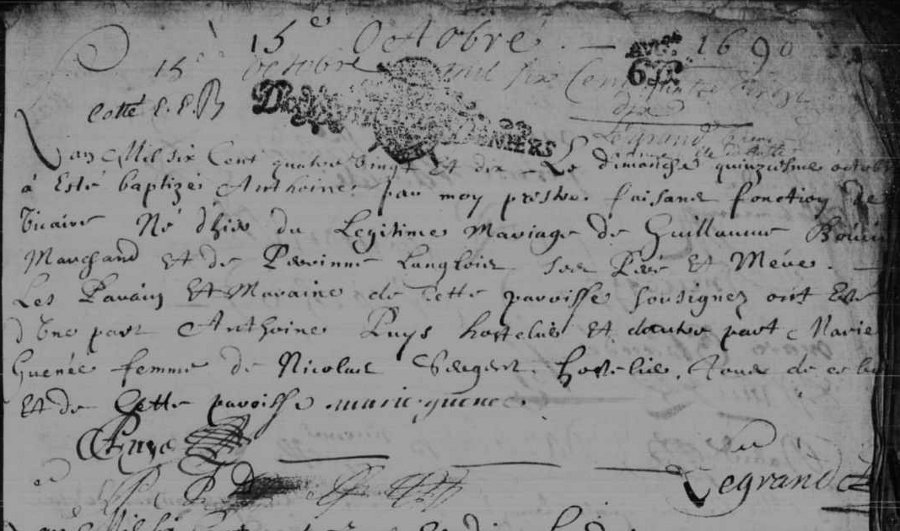 15e Octobre 1690
15e octobre mil six Cent quatre vingt
dix
Cotté E. E. B
DENIERS
Legrand
Lan Mil six Cent quatre vingt Et dix Le dimanche quinziesme octobre
à Esté baptizé Anthoine par moy prestre faisant fonction de
Vicaire Né d'hier du Legitime Mariage de Guillaume
Marchand Et de Perrinne Langlois ses Pere Et Mere
Les Parain Et Maraine de cette paroisse soussignez ont Esté
d'Une part Anthoine Puys hostelier Et dautre part Marie
Guenée femme de Nicolas hostelier, tous de ce
Et de Cette paroisse marie guenee
Puys
Legrand